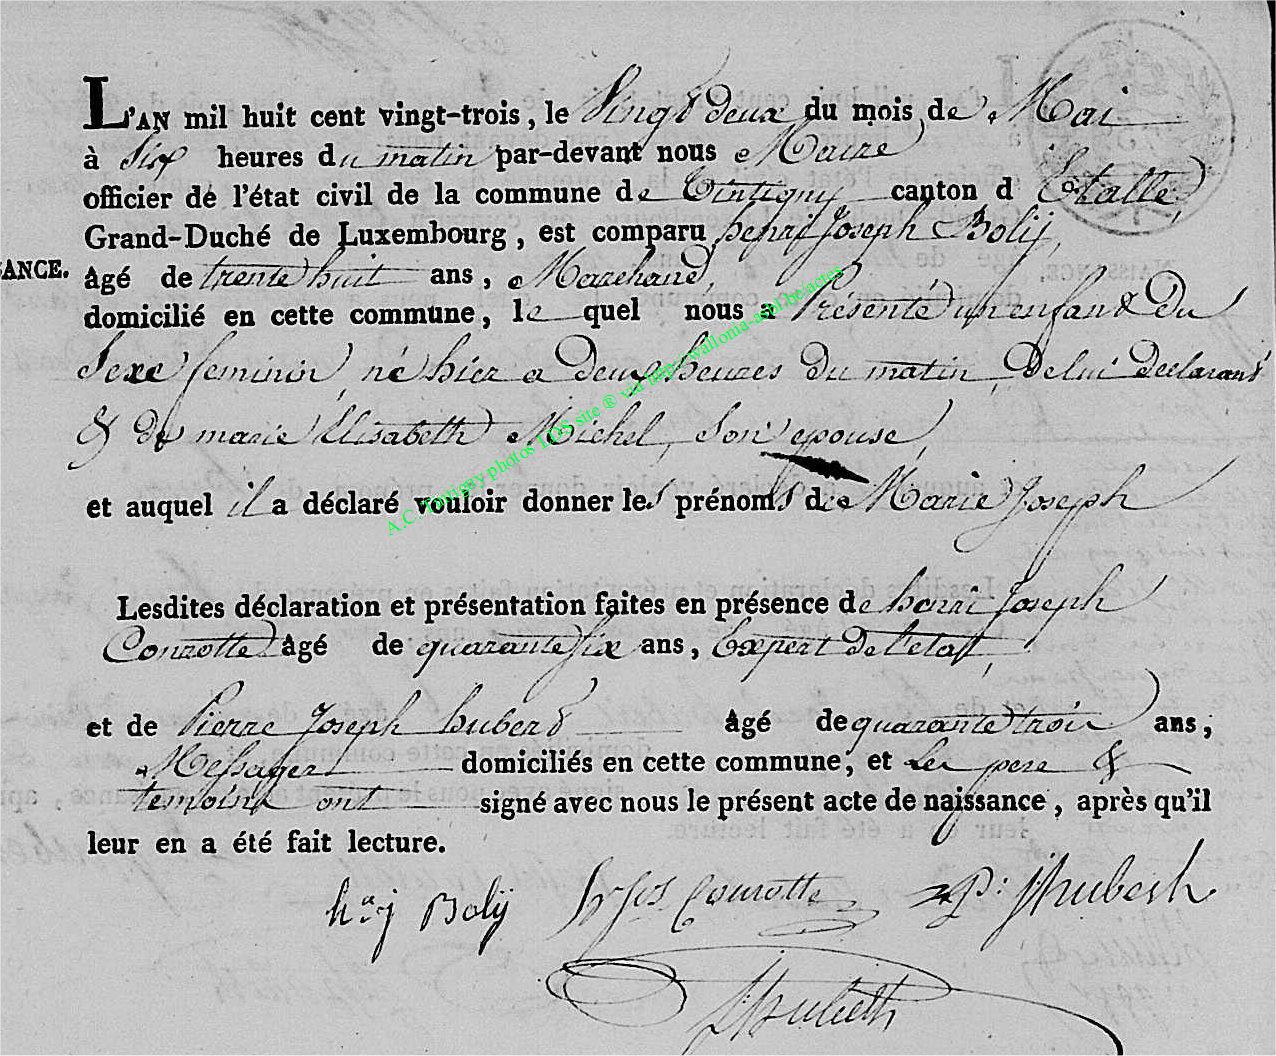 L'AN mil huit cent vingt-trois, le Vingt deux du mois de Mai
à Six heures du matin par-devant nous Maire
officier de l'état civil de la commune de Tintigny canton d'Etalle,
Grand-Duché de Luxembourg, est comparu henri Joseph Bolij,
SANCE. âgé de trente huit ans, Marchand,
domicilié en cette commune, le quel nous a Présenté un enfant du
Sexe feminin, né hier a deux heures du matin, De lui declarant
& de marie Elisabeth Michel, Son epouse,
et auquel il a déclaré vouloir donner les prénoms de Marie Joseph
A.C. Tintigny photos LDS site ® via http://wallonia-asbl.be/actes
Lesdites déclaration et présentation faites en présence de henri Joseph
Courotte âgé de quarante six ans, Expert de l'etat,
et de Pierre Joseph hubert âgé de quarante trois ans,
Messager domiciliés en cette commune, et Les pere &
temoins ont signé avec nous le présent acte de naissance, après qu'il
leur en a été fait lecture.
h.ri j Bolÿ hr Jos Courotte P: J hubert